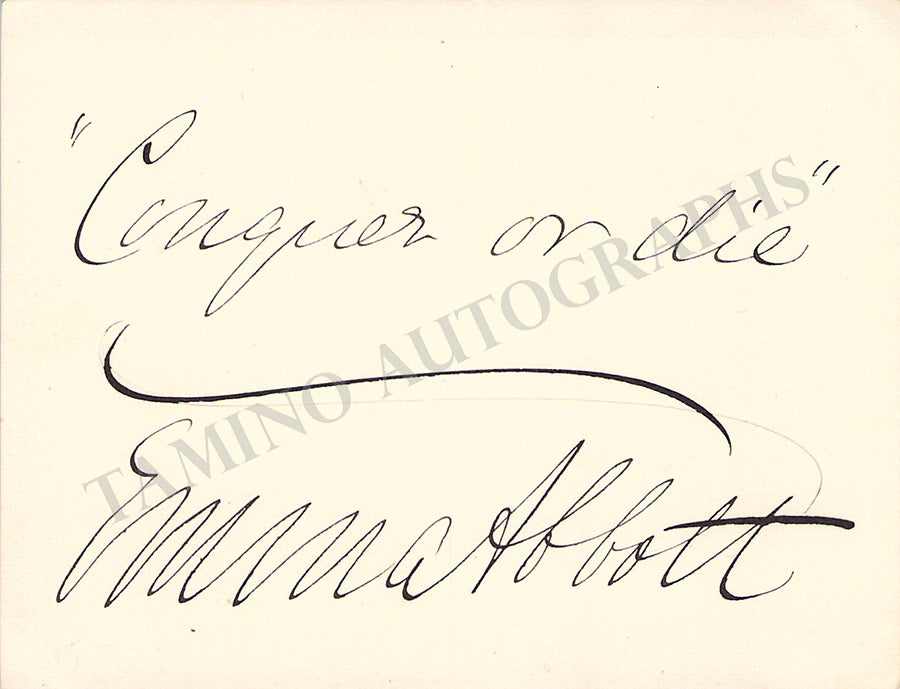 "Conquer or die"
Emma Abbott
TAMINO AUTOGRAPHS